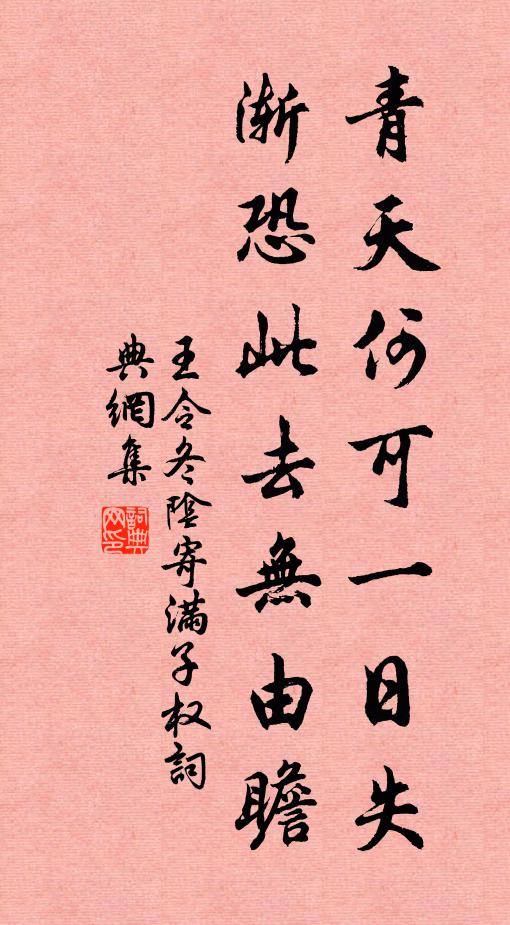 青天何可一日失
漸恐此去無由瞻
王令冬陰寄滿子权詞
典網集
詞典
网印